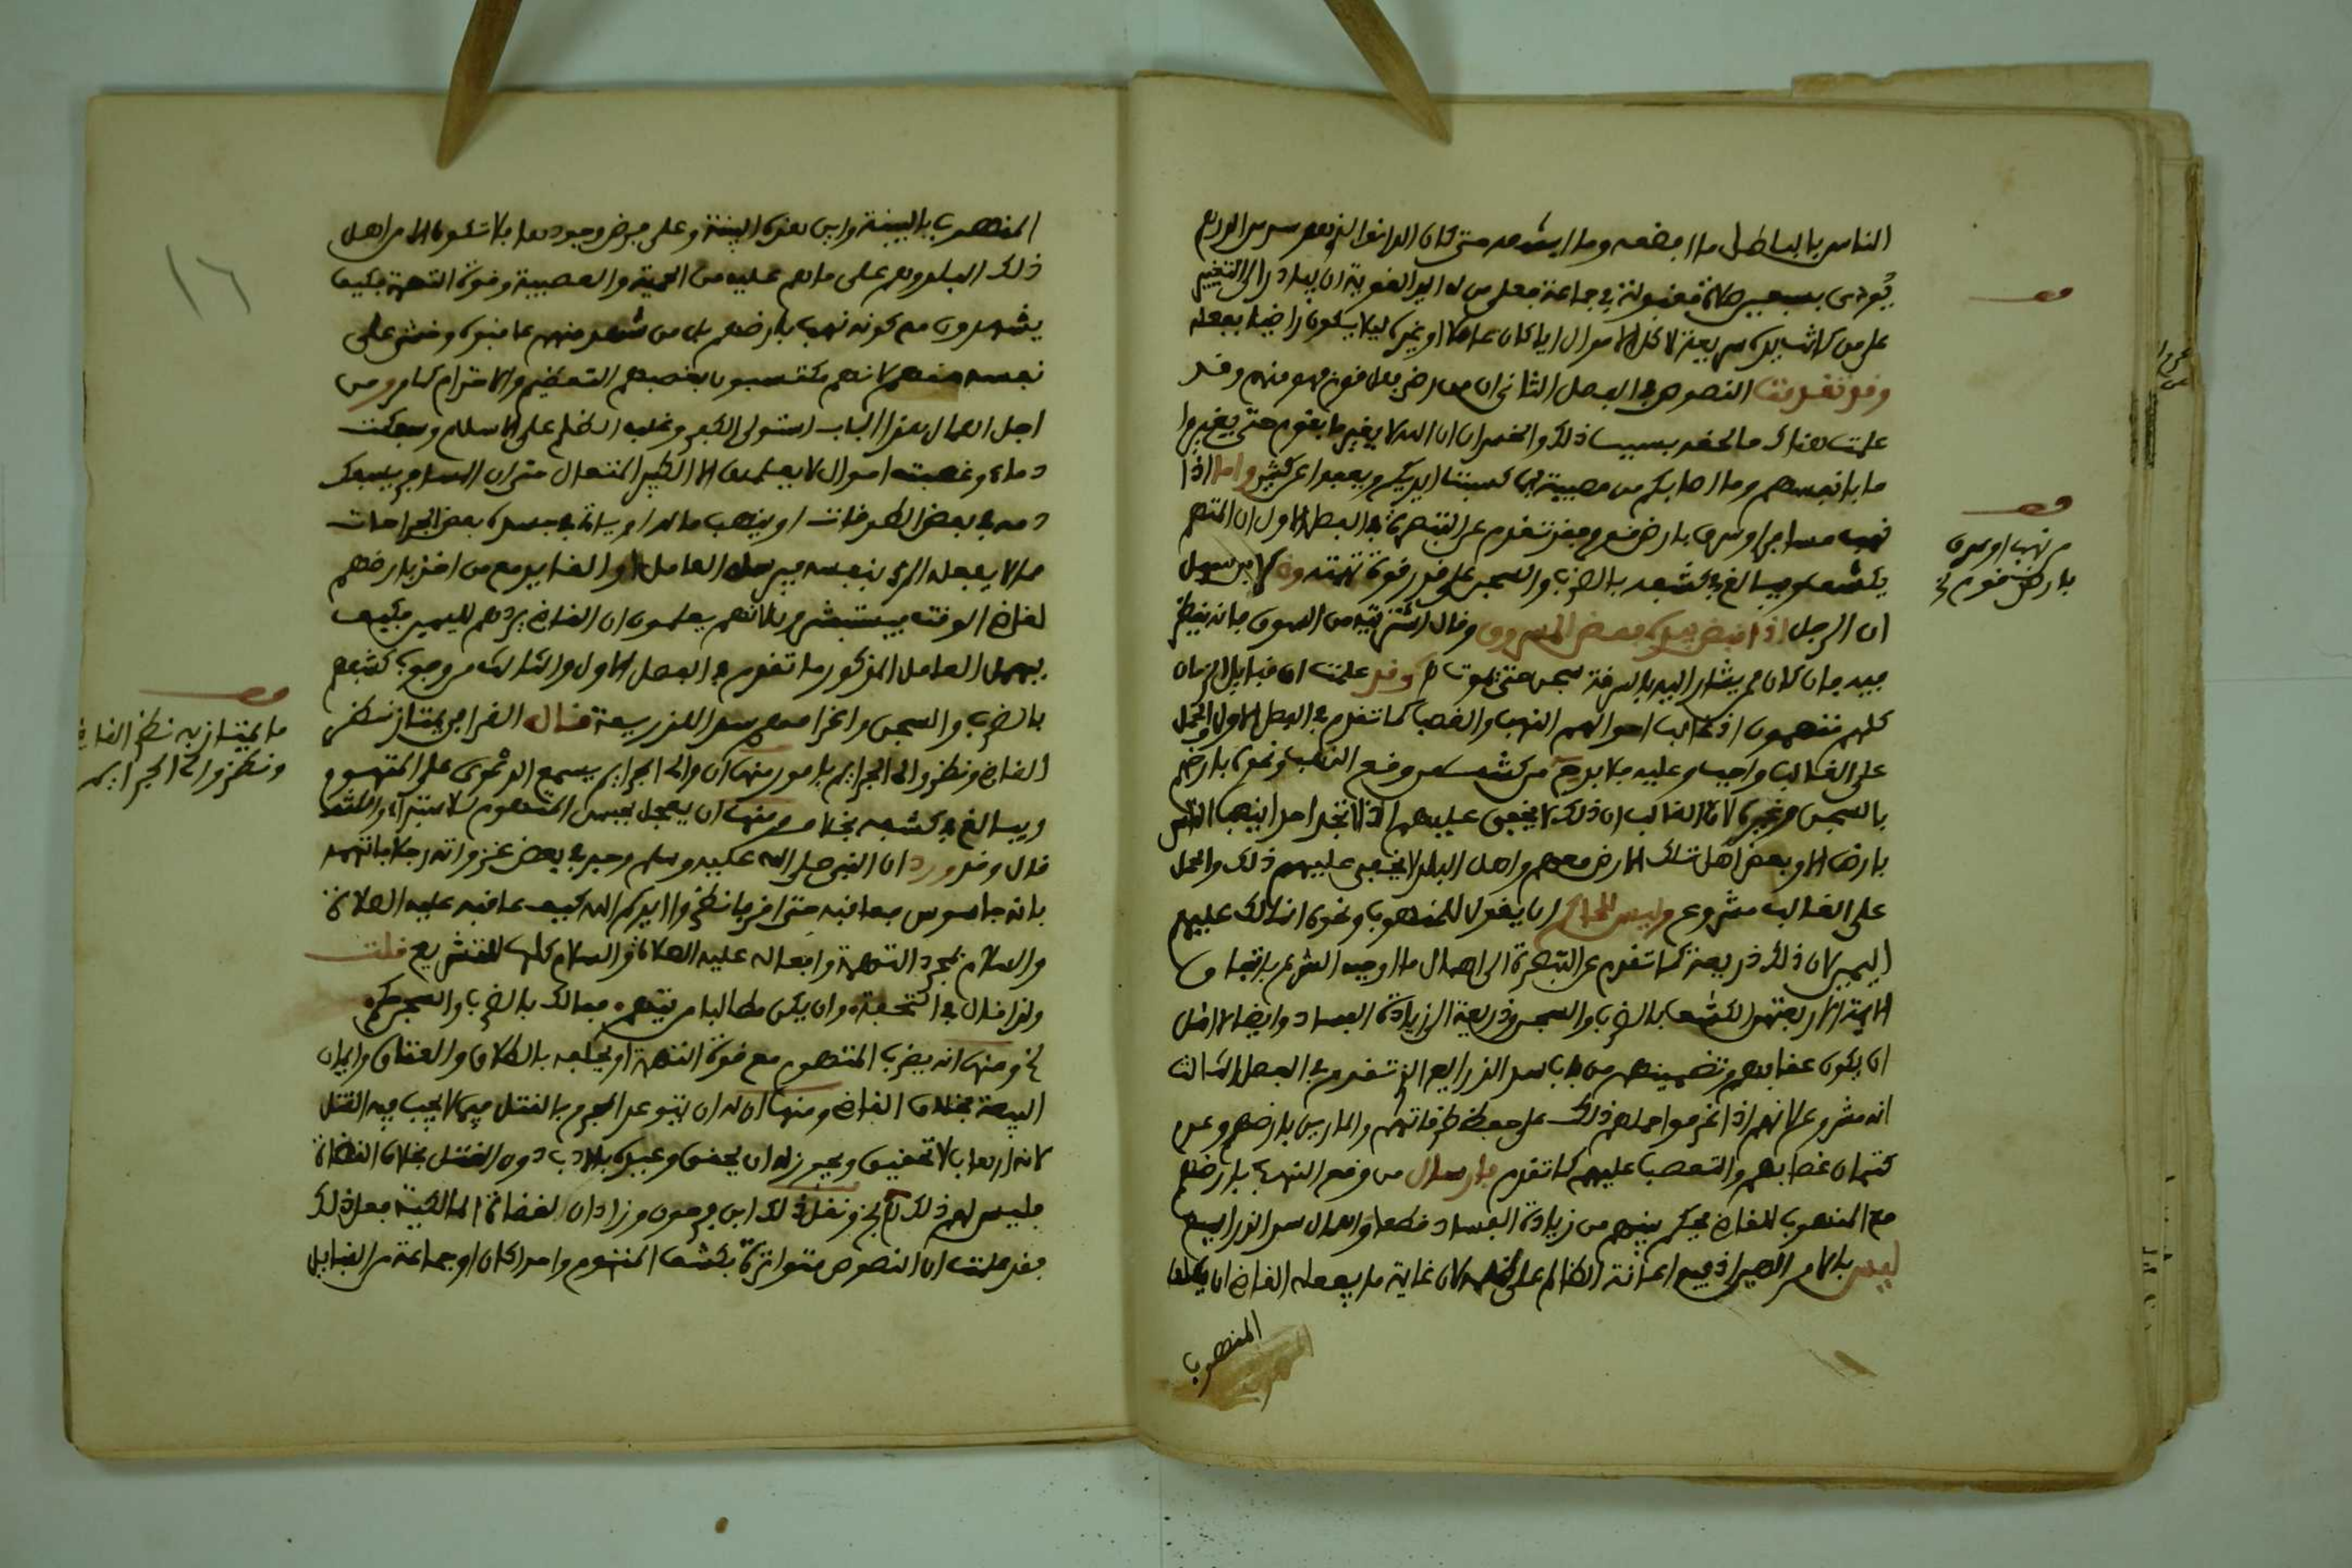 الناس بالباطل ما افضعه وما اشنعه حتى كان
يؤدى بسببه صلاة مقبولة في جماعة فعلى من له اليد القوية ان يبادر الى التغيير
على من كانت يده سريعة لاكل الاموال ايا كان عاملا او غيره ليلا يكون راضيا بفعله
وقد تقدمت النصوص في الفصل الثاني ان من رضي بعمل قوم فهو منهم وقد
علمت هناك ما لحقه بسبب ذلك والخسران ان الله لا يغير ما بقوم حتى يغيروا
ما بانفسهم وما اصابكم من مصيبة فبما كسبت ايديكم ويعفوا عن كثير واما اذا
نهب مسافر او سرق بارض قوم فقد تقدم عن التبصرة في الفصل الاول ان المتهم
يكشف ويبالغ في كشفه بالضرب والسجن على قدر قوة تهمته
ان الرجل اذا قبض بيده بعض المسروق وقال اشتريته من السوق فانه ينظر
فيه فان كان ممن يشار اليه بالسرقة سجن حتى يموت وقد علمت ان قبايل الزمان
كلهم متهمون اذ غالب احوالهم النهب والغصب كما تقدم في الفصل الاول والحمل
على الغالب واجب وعليه فلا بد من كشف من وقع النهب ونحوه بارضهم
بالسجن وغيره لان الغالب ان ذلك لا يخفى عليهم اذ لا تجد احدا ينهب الناس
بارض الا وبعض اهل تلك الارض معهم واهل البلد لا يخفى عليهم ذلك والحمل
على الغالب مشروع وليس للحاكم ان يقول للمنهوب ونحوه انما لك عليهم
اليمين لان ذلك ذريعة كما تقدم عن التبصرة الى اهمال ما اوجبه الشرع باتفاق
الايمة الاربعة من الكشف بالضرب والسجن وذريعة الى زيادة الفساد وايضا لا اقل
ان يكون عقابهم وتضمينهم من باب سد الذرايع الذي تقدم في الفصل الثالث
انه مشروع لانهم اذا غرموا حملهم ذلك على حفظ طرقاتهم والمارين بارضهم وعن
كتمان غصابهم والتعصب عليهم كما تقدم فارسال من وقع النهب بارضهم
مع المنهوب للقاضي يحكم بينهم من زيادة الفساد قطعا واهمال سد الذرايع
ليس بالامر الهين اذ فيه اعانة الظالم على ظلمه لان غاية ما يفعله القاضي ان يكلف
المنهوب
من نهب او سرق
بارض قوم
المنهوب بالبينة واين هذه البينة وعلى فرض وجودها فلا تكون الا من اهل
ذلك البلد وهم على ما هم عليه من الحمية والعصبية وقوة التهمة فكيف
يشهدون مع كونه نهب بارضهم بل من شهد منهم عاقبوه وخشي على
نفسه منهم لانهم يكتسبون بغصبهم التعظيم والاحترام كما مر ومن
اجل اهمال هذا الباب استولى الكفر وغلب الظلم على الاسلام وسفكت
دماء وغصبت اموال لا يعلمها الا الكبير المتعال حتى ان المسافر يسفك
دمه في بعض الطرقات او ينهب ماله او ياتي في جسده بعض الجراحات
مما لا يفعله الذي بنفسه فيرسل العامل او القايد مع من اخذ بارضهم
لقاضي الوقت فيستبشرون لانهم يعلمون ان القاضي يردهم لليمين فكيف
يهمل العامل المذكور ما تقدم في الفصل الاول والثالث من وجوب كشفهم
بالضرب والسجن واغرامهم سدا للذريعة قال القرافي يمتاز نظر
القاضي ونظر والي الجرايم بامور منها ان والي الجرايم يسمع الدعوى على المتهوم
ويبالغ في كشفه بخلاف القاضي ومنها ان يعجل بحبس المتهوم للاستبراء والكشف
قال وقد ورد ان النبي صلى الله عليه وسلم وجد في بعض غزواته رجلا فاتهمه
بانه جاسوس فعاقبه حتى اقر فانظروا ايدكم الله كيف عاقبه عليه الصلاة
والسلام بمجرد التهمة وافعاله عليه الصلاة والسلام كلها للتشريع قلت
ولذا قال في التحفة وان يكن مطالبا من يتهم فمالك بالضرب والسجن حكم
الخ ومنها انه يضرب المتهوم مع قوة التهمة او يحلفه بالطلاق والعتاق وايمان
البيعة بخلاف القاضي ومنها ان له ان يتوعد المجرم بالقتل فيما لا يجب فيه القتل
لانه ارهاب لا تحقيق ويجوز له ان يحقق وعيده بالادب دون القتل بخلاف القضاة
فليس لهم ذلك الخ ونقل ذلك ابن فرحون وزاد ان القضاة المالكية فعل ذلك
فقد علمت ان النصوص متواترة بكشف المتهوم واحدا كان او جماعة من القبايل
ما يمتاز به نظر القاضي
ونظر والي الجرايم
١٦